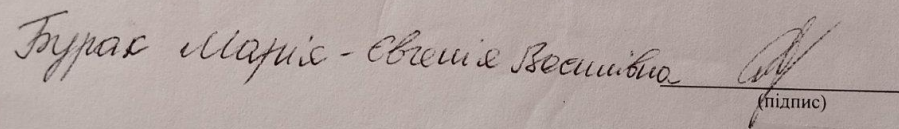 Бурак Марія - Євгенія Василівна
(підпис)